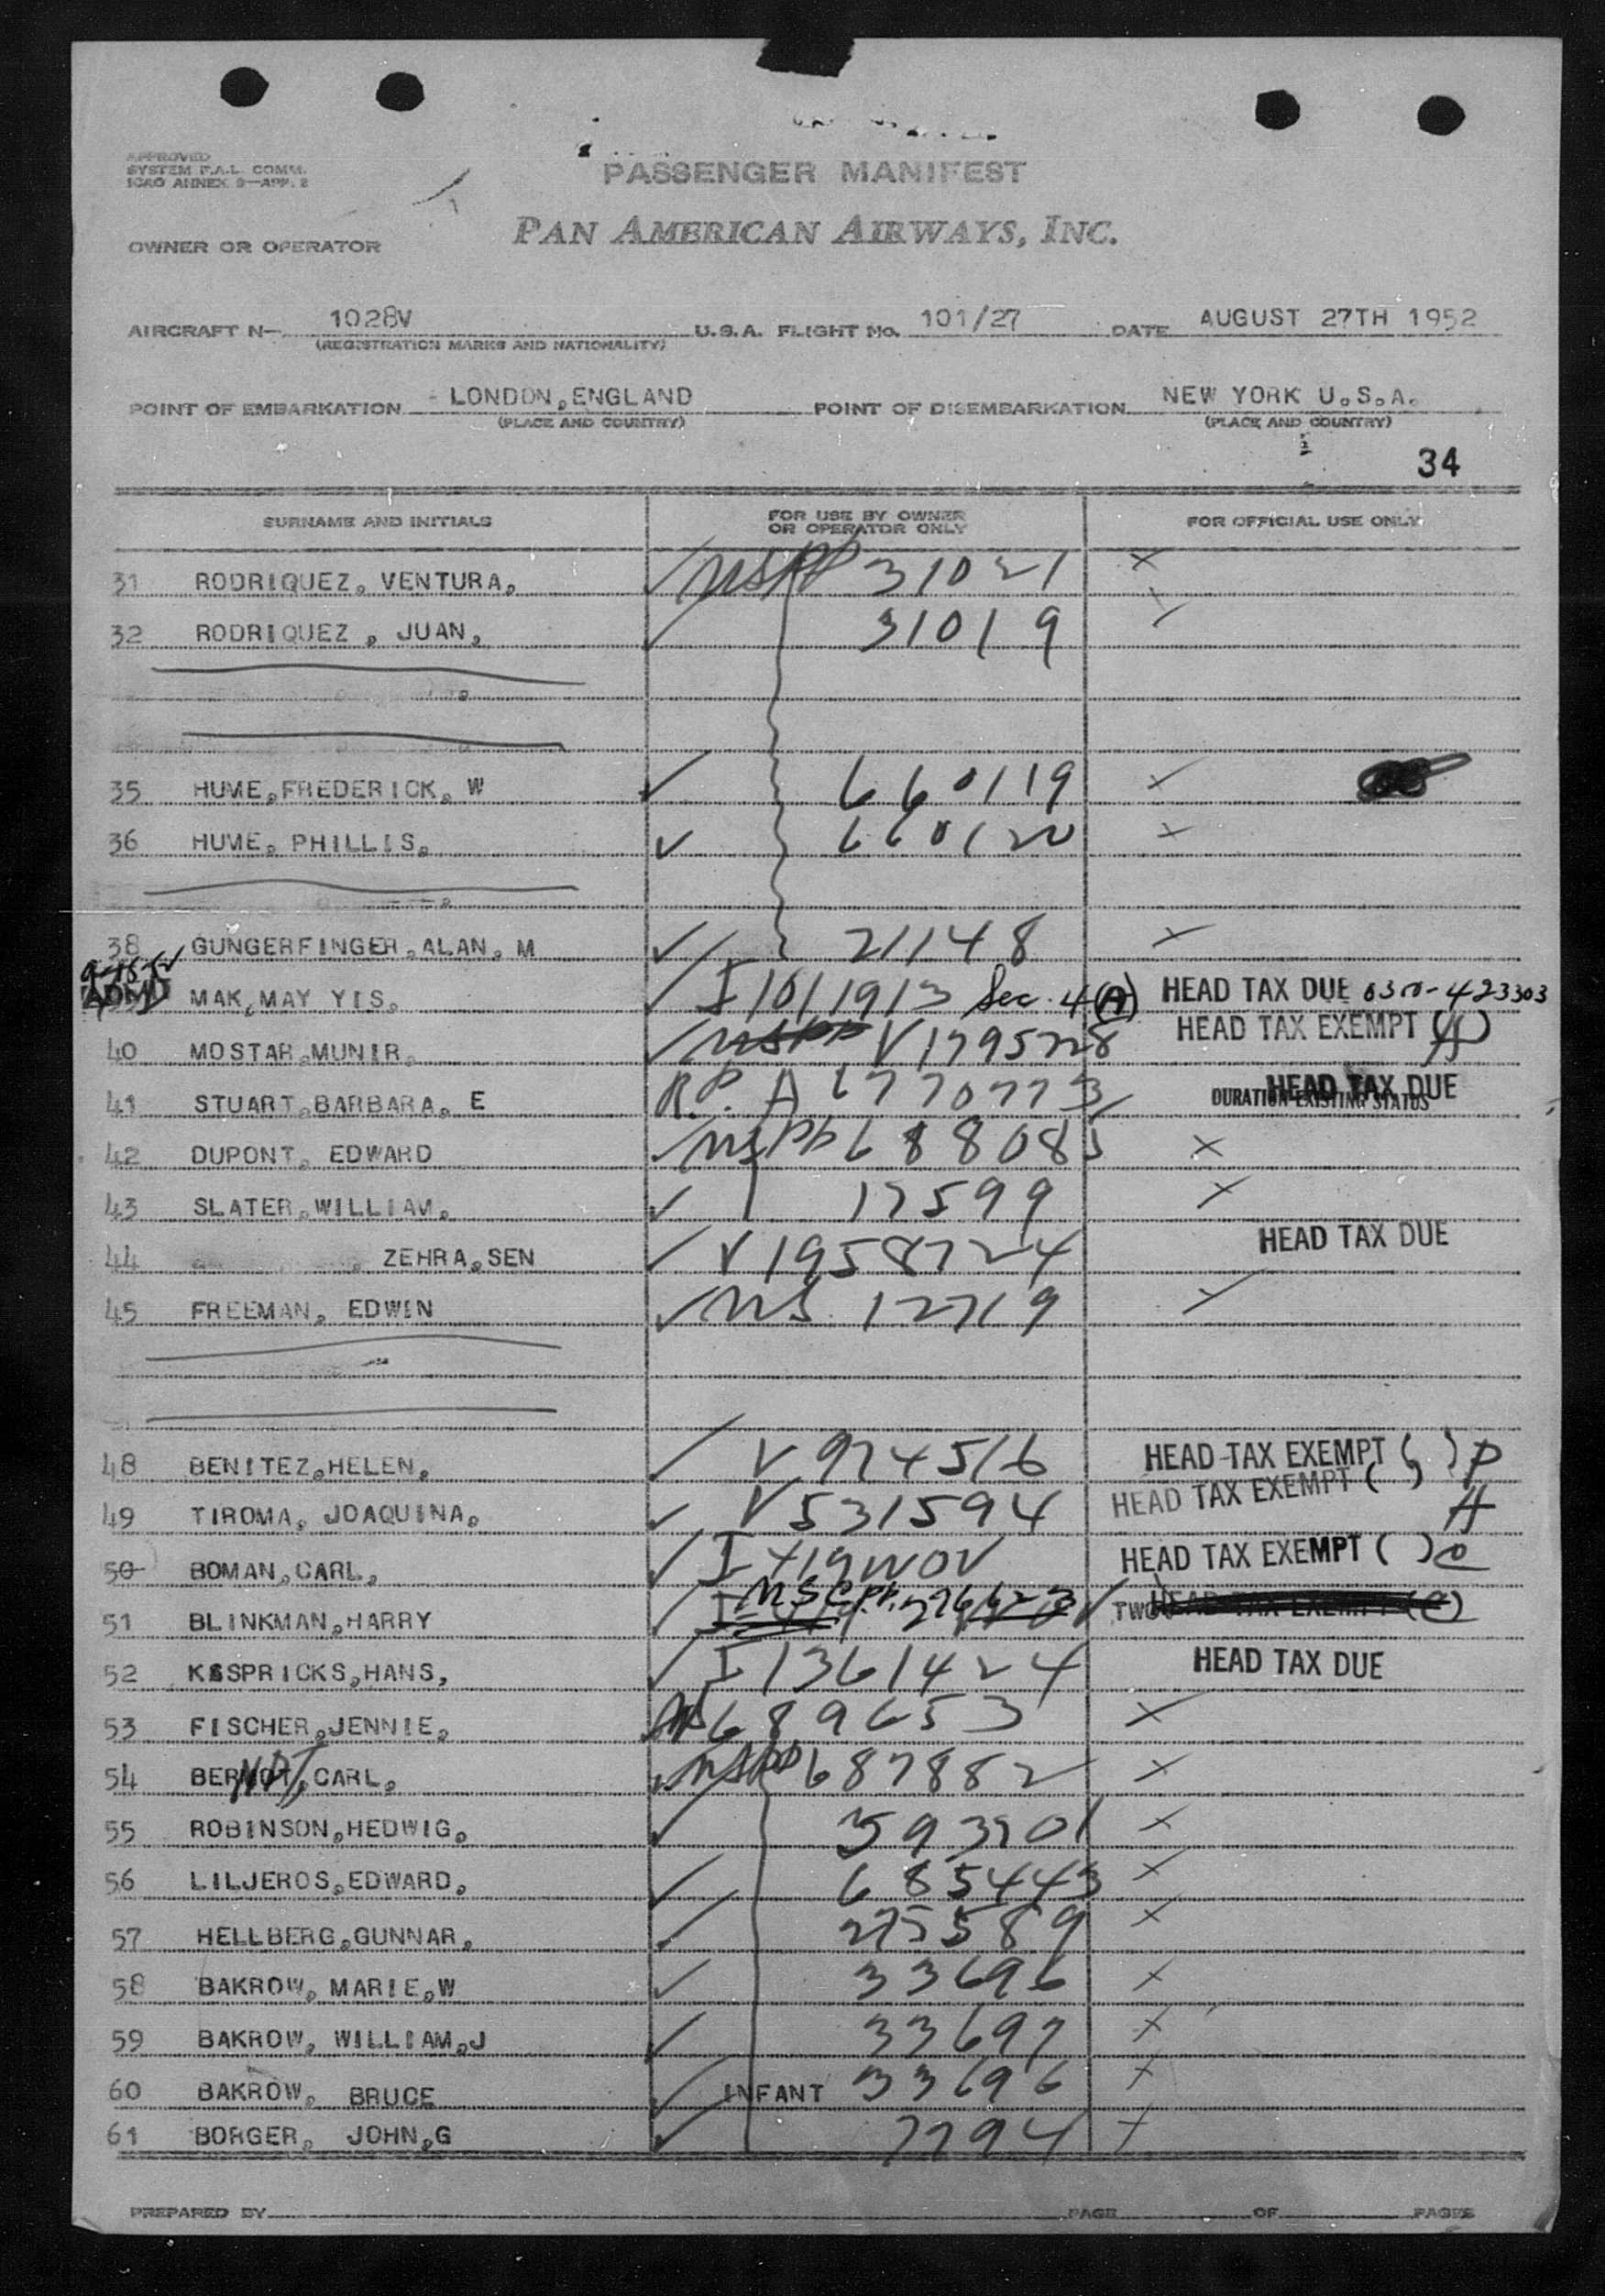 APPROVED
SYSTEM F.A.L. COMM.
ICAO ANNEX 9—APP. 2
PASSENGER MANIFEST
PAN AMERICAN AIRWAYS, INC.
OWNER OR OPERATOR
AIRCRAFT N— 1028V U.S.A. FLIGHT No. 101/27 DATE AUGUST 27TH 1952
(REGISTRATION MARKS AND NATIONALITY)
POINT OF EMBARKATION LONDON, ENGLAND POINT OF DISEMBARKATION NEW YORK U.S.A.
(PLACE AND COUNTRY) (PLACE AND COUNTRY)
34
SURNAME AND INITIALS FOR USE BY OWNER OR OPERATOR ONLY FOR OFFICIAL USE ONLY
31 RODRIQUEZ, VENTURA, USPP 31021 X
32 RODRIQUEZ, JUAN, 31019
35 HUME, FREDERICK, W 660119 X
36 HUME, PHILLIS, 660120 X
38 GUNGERFINGER, ALAN, M 21148 X
9-15-52
ADMD MAK, MAY YIS, I 1011913 Sec. 4(A) HEAD TAX DUE 0300-423303
40 MOSTAR, MUNIR, V1795728 HEAD TAX EXEMPT (A)
41 STUART, BARBARA, E R.P. A 6770773 HEAD TAX DUE
DURATION EXISTING STATUS
42 DUPONT, EDWARD USPP 688085 X
43 SLATER, WILLIAM, 17599 X
44 ZEHRA, SEN V1958724 HEAD TAX DUE
45 FREEMAN, EDWIN US 12719
48 BENITEZ, HELEN, V 974516 HEAD TAX EXEMPT ( ) P
49 TIROMA, JOAQUINA, V531594 HEAD TAX EXEMPT ( ) A
50 BOMAN, CARL, HEAD TAX EXEMPT ( )
51 BLINKMAN, HARRY TWO
52 KASPRICKS, HANS, I 1361424 HEAD TAX DUE
53 FISCHER, JENNIE, 689653 X
54 CARL, USPP 687882 X
55 ROBINSON, HEDWIG, 593701 X
56 LILJEROS, EDWARD, 685443 X
57 HELLBERG, GUNNAR, 275589 X
58 BAKROW, MARIE, W 33696 X
59 BAKROW, WILLIAM, J 33697 X
60 BAKROW, BRUCE INFANT 33696 X
61 BORGER, JOHN, G 7794 X
PREPARED BY PAGE OF PAGES